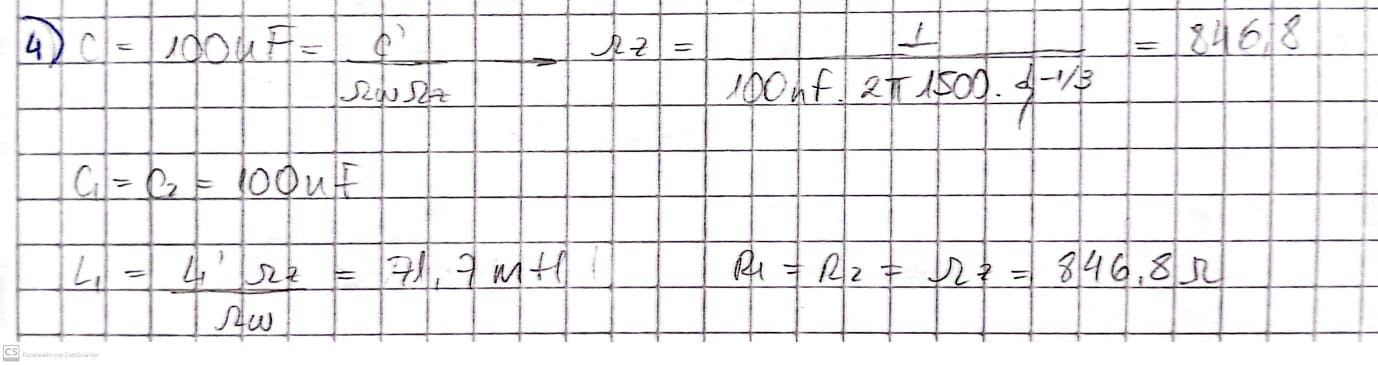 4) C = 100nF = C' / ΩwΩz → Ωz = 1 / 100nF. 2π 1500. ξ^-1/3 = 846,8
C1 = C2 = 100nF
L1 = L1' Ωz / Ωw = 71,7 mH R1 = R2 = Ωz = 846,8 Ω
CS Escaneado con CamScanner